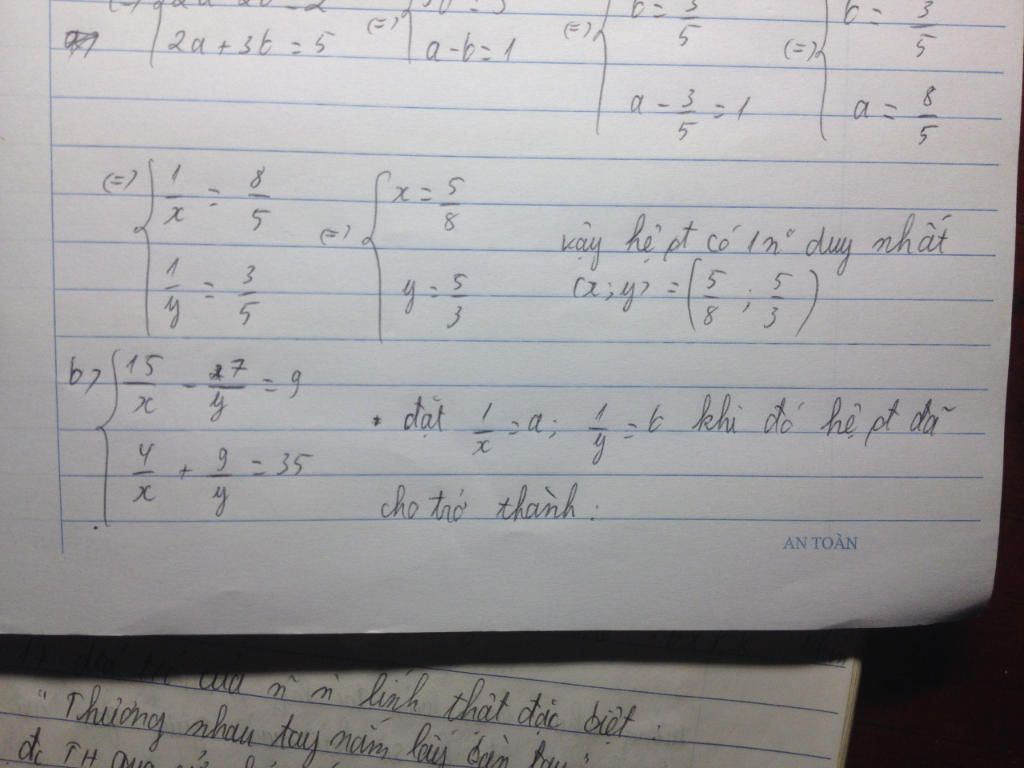 2a + 3b = 5 (=) a - b = 1 (=) b = 3/5 (=) b = 3/5
a - 3/5 = 1 a = 8/5
(=) 1/x = 8/5 (=) x = 5/8
1/y = 3/5 y = 5/3
vậy hệ pt có 1 n° duy nhất
(x; y) = (5/8 ; 5/3)
b) 15/x - 7/y = 9
4/x + 9/y = 35
* đặt 1/x = a; 1/y = b khi đó hệ pt đã
cho trở thành:
AN TOÀN
của n n lính thật đặc biệt:
"Thương nhau tay nắm lấy bàn tay"